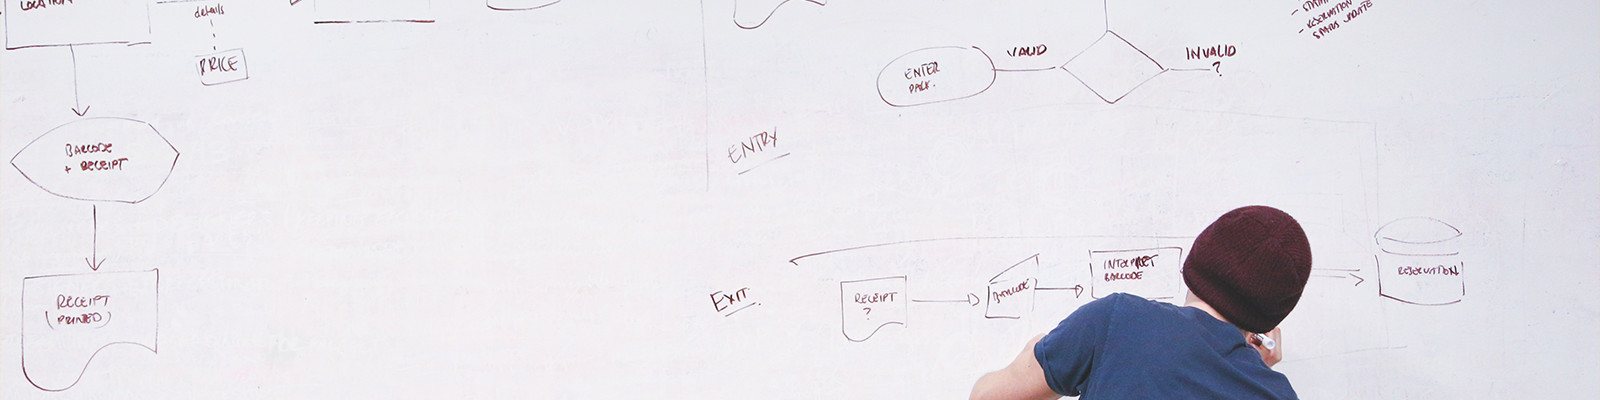 LOCATION
details
PRICE
BARCODE
+ RECEIPT
RECEIPT
(PRINTED)
ENTER
PARK.
VALID
INVALID
?
- RESERVATION
STATUS UPDATE
ENTRY
EXIT.
RECEIPT
?
BARCODE
INTERPRET
BARCODE
RESERVATION